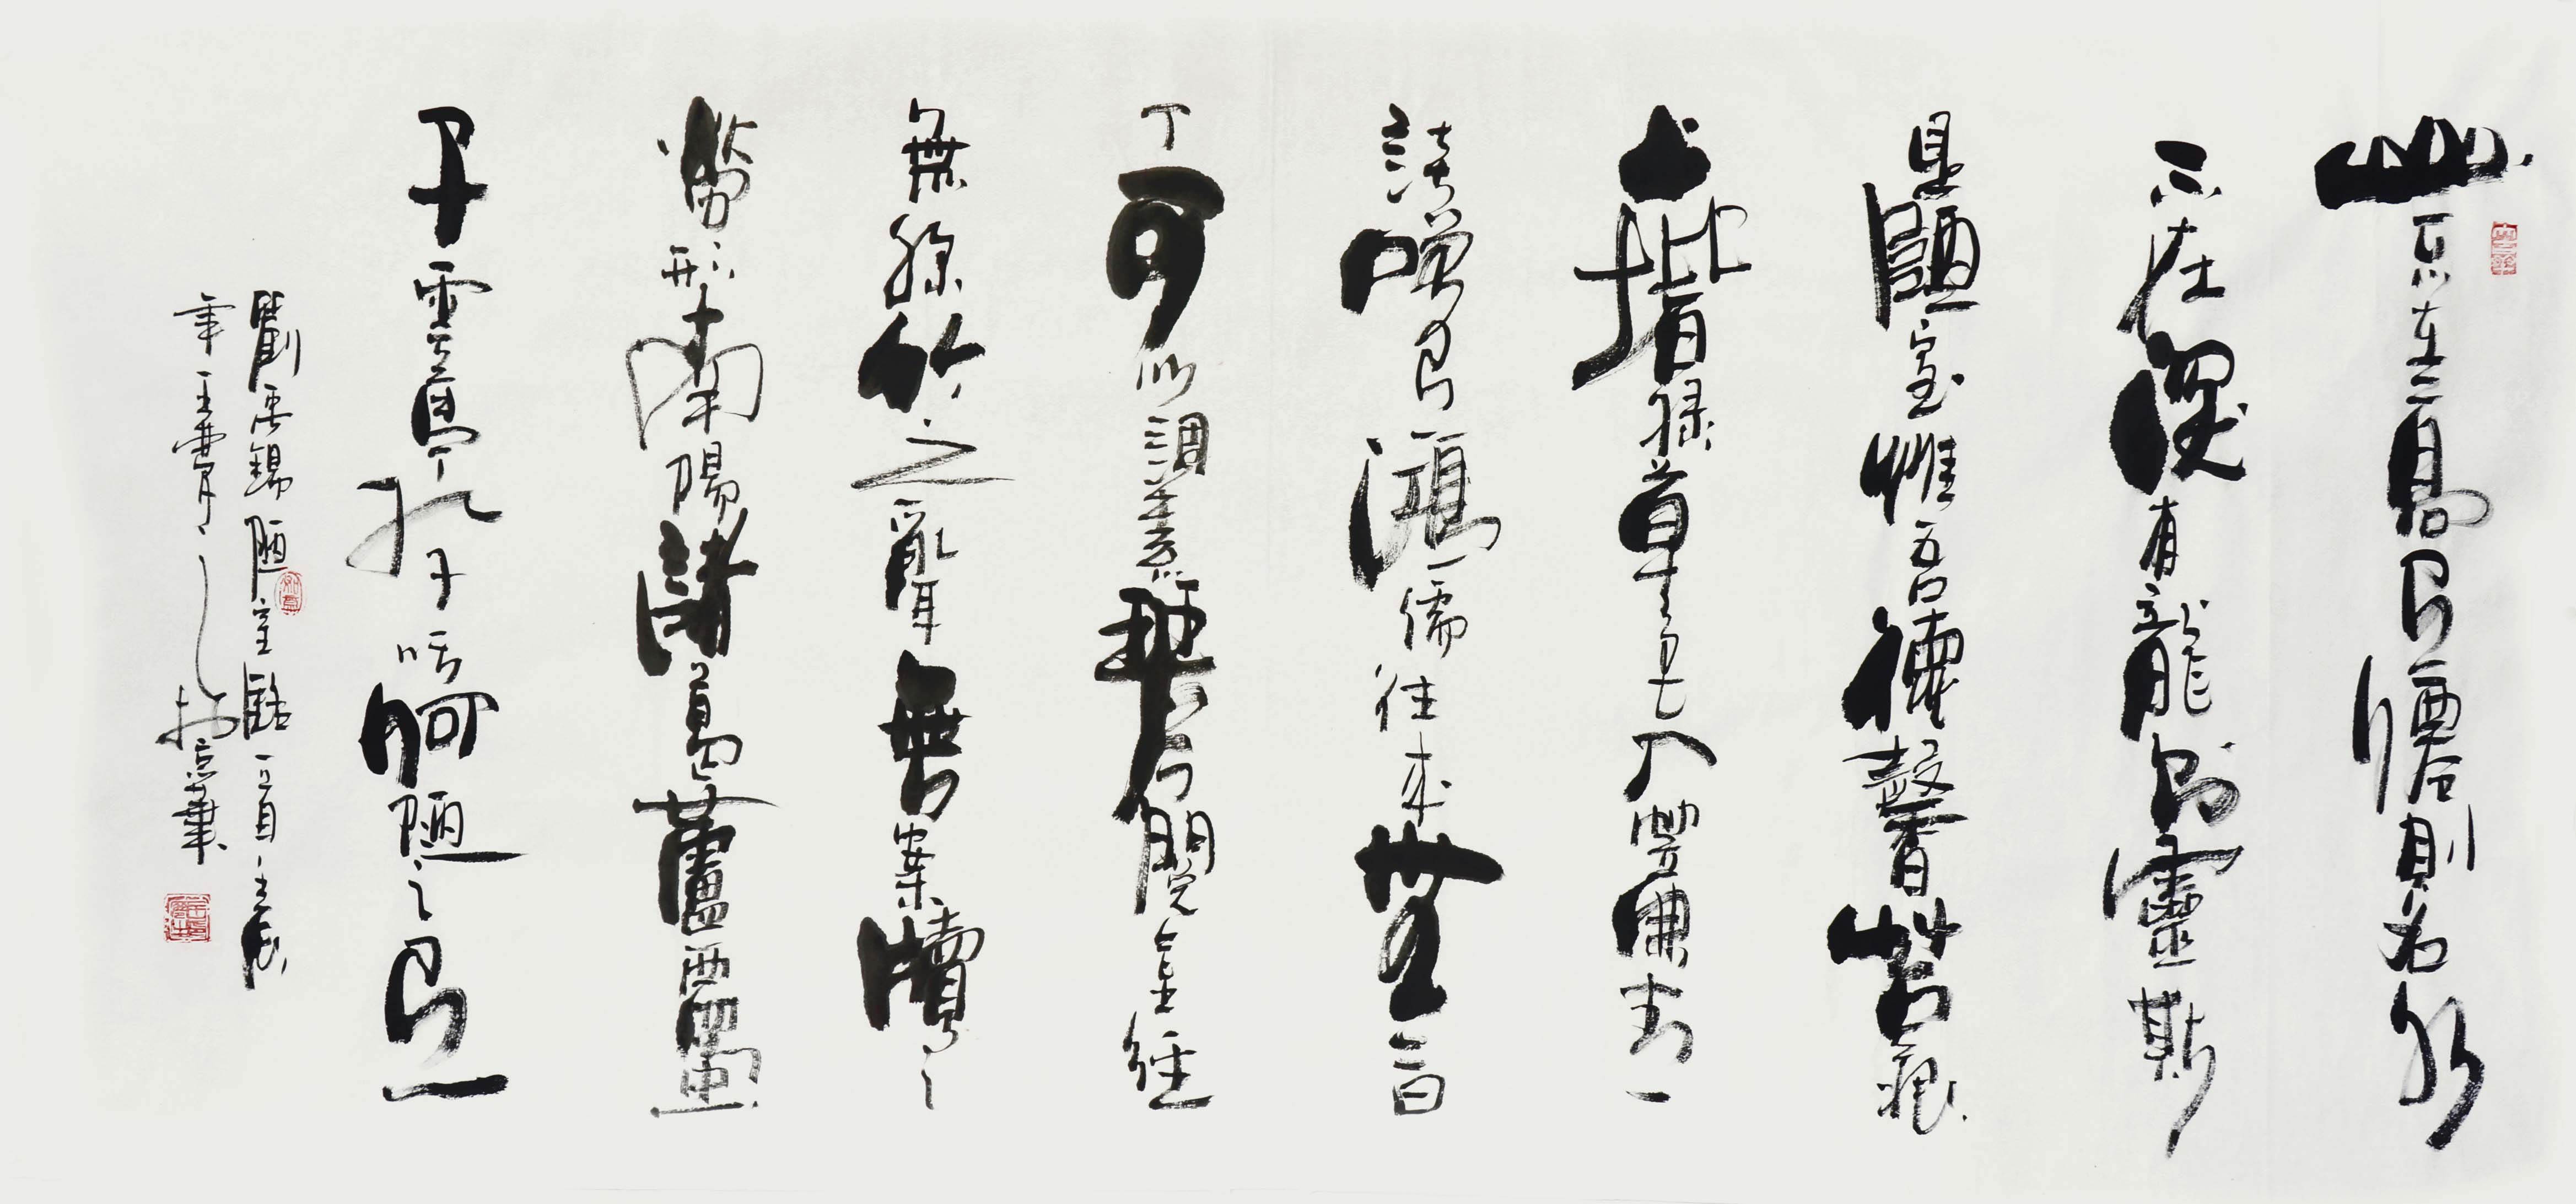 山不在高有僊則名水
不在深有龍則靈斯
是陋室惟吾德馨苔痕
上階綠草色入簾青
談笑有鴻儒往來無白
丁可以調素琴閱金經
無絲竹之亂耳無案牘之
勞形南陽諸葛廬西蜀
子雲亭孔子云何陋之有
劉禹錫陋室銘一首壬辰
年王霄之於京華